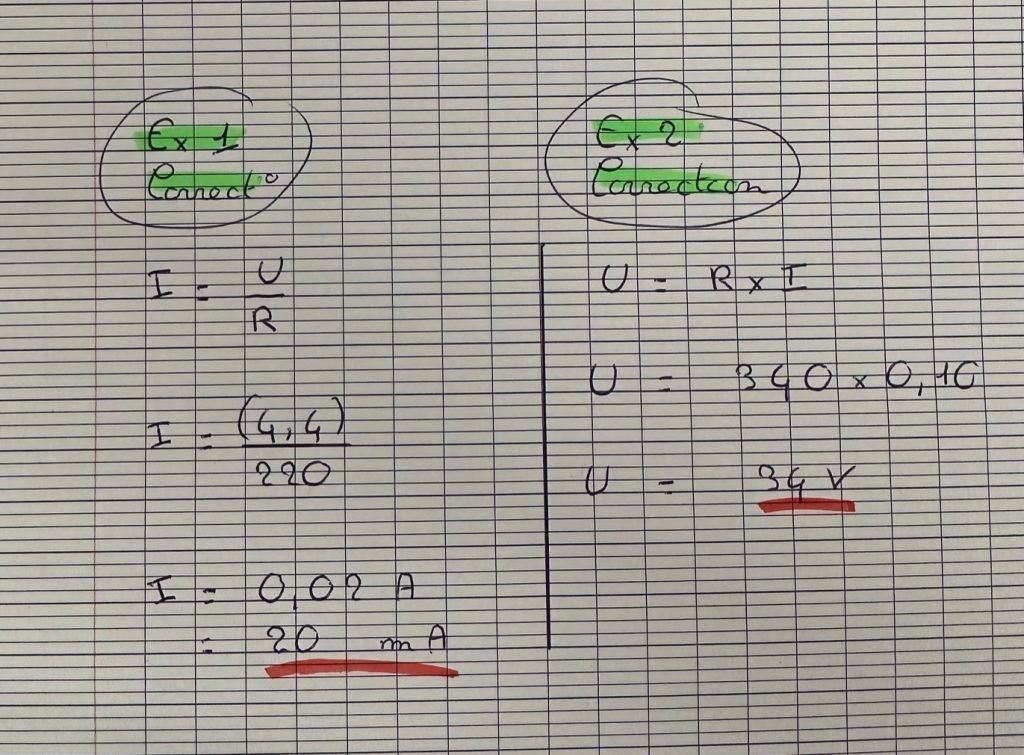 Ex 1
Correct°
I = U
R
I = (4,4)
220
I = 0,02 A
= 20 mA
Ex 2
Correction
U = R x I
U = 340 x 0,10
U = 34 V